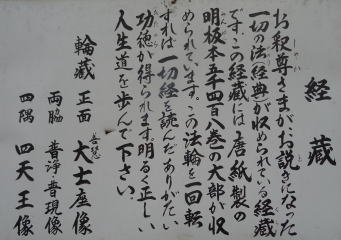 経蔵
お釈尊さまがお説きになった
一切の法(経典)が収められている経蔵
です。この経蔵には唐紙製の
明板本五千四百八巻の大部が収
められています。この法輪を一回転
すれば一切経を読んだありがたい
功徳が得られます。明るく正しい
人生道を歩んで下さい。
輪蔵 正面 善慧大士座像
両脇 普浄・普現像
四隅 四天王像